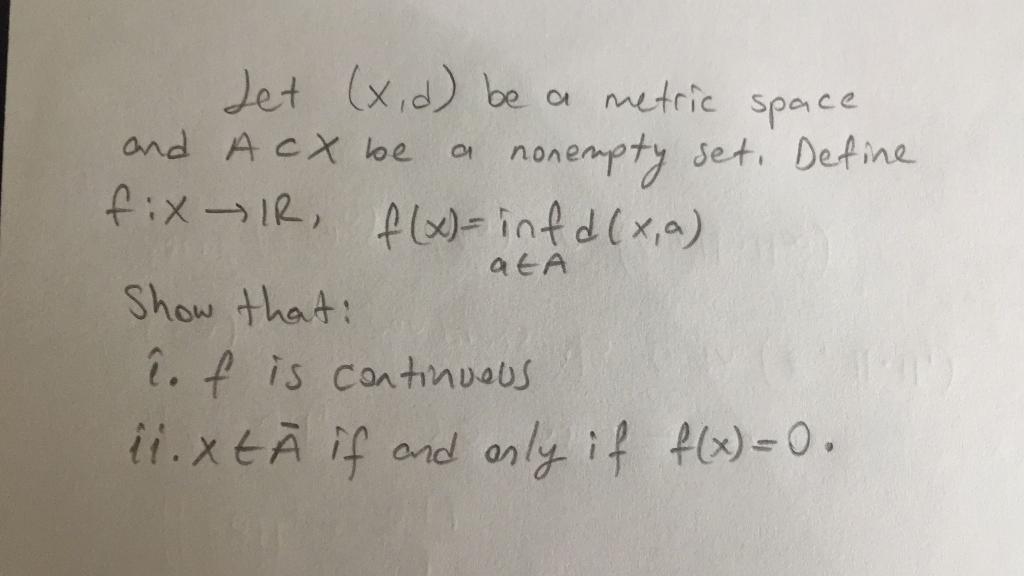 Let (X,d) be a metric space
and A⊂X be a nonempty set. Define
f:X→ℝ, f(x)= inf d(x,a)
a∈A
Show that:
i. f is continuous
ii. x∈Ā if and only if f(x)=0.